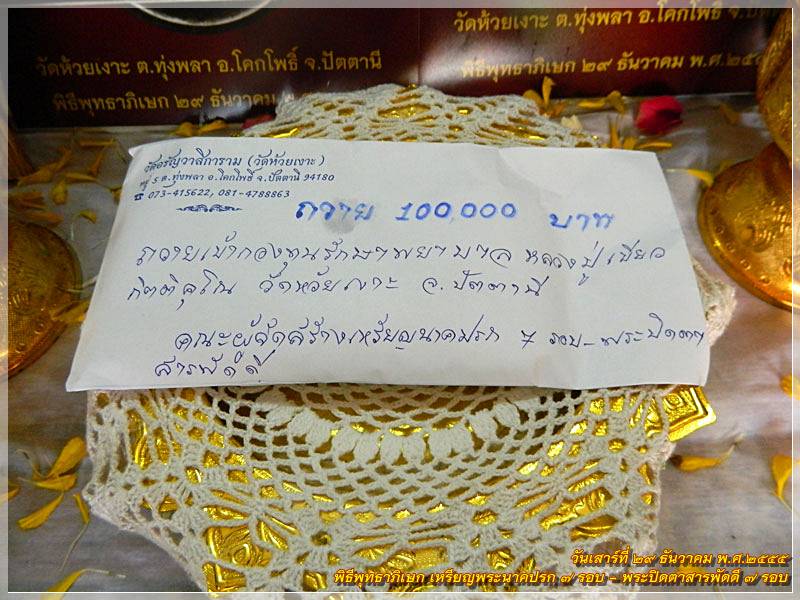 วัดห้วยเงาะ ต.ทุ่งพลา อ.โคกโพธิ์ จ.ปัตตานี
พิธีพุทธาภิเษก ๒๙ ธันวาคม พ.ศ.
วัดห้วยเงาะ ต.ทุ่งพลา อ.โคกโพธิ์ จ.ปัต
พิธีพุทธาภิเษก ๒๙ ธันวาคม พ.ศ.๒๕๕
วัดอรัญวาสิการาม (วัดห้วยเงาะ)
หมู่ 5 ต.ทุ่งพลา อ.โคกโพธิ์ จ.ปัตตานี 94180
☎ 073-415622, 081-4788863
ถวาย 100,000 บาท
ถวายเข้ากองทุนรักษาพยาบาล หลวงปู่เขียว
กิตติคุโณ วัดห้วยเงาะ จ.ปัตตานี
คณะผู้จัดสร้างเหรียญนาคปรก 7 รอบ - พระปิดตา
สารพัดดี
วันเสาร์ที่ ๒๙ ธันวาคม พ.ศ.๒๕๕๕
พิธีพุทธาภิเษก เหรียญพระนาคปรก ๗ รอบ - พระปิดตาสารพัดดี ๗ รอบ